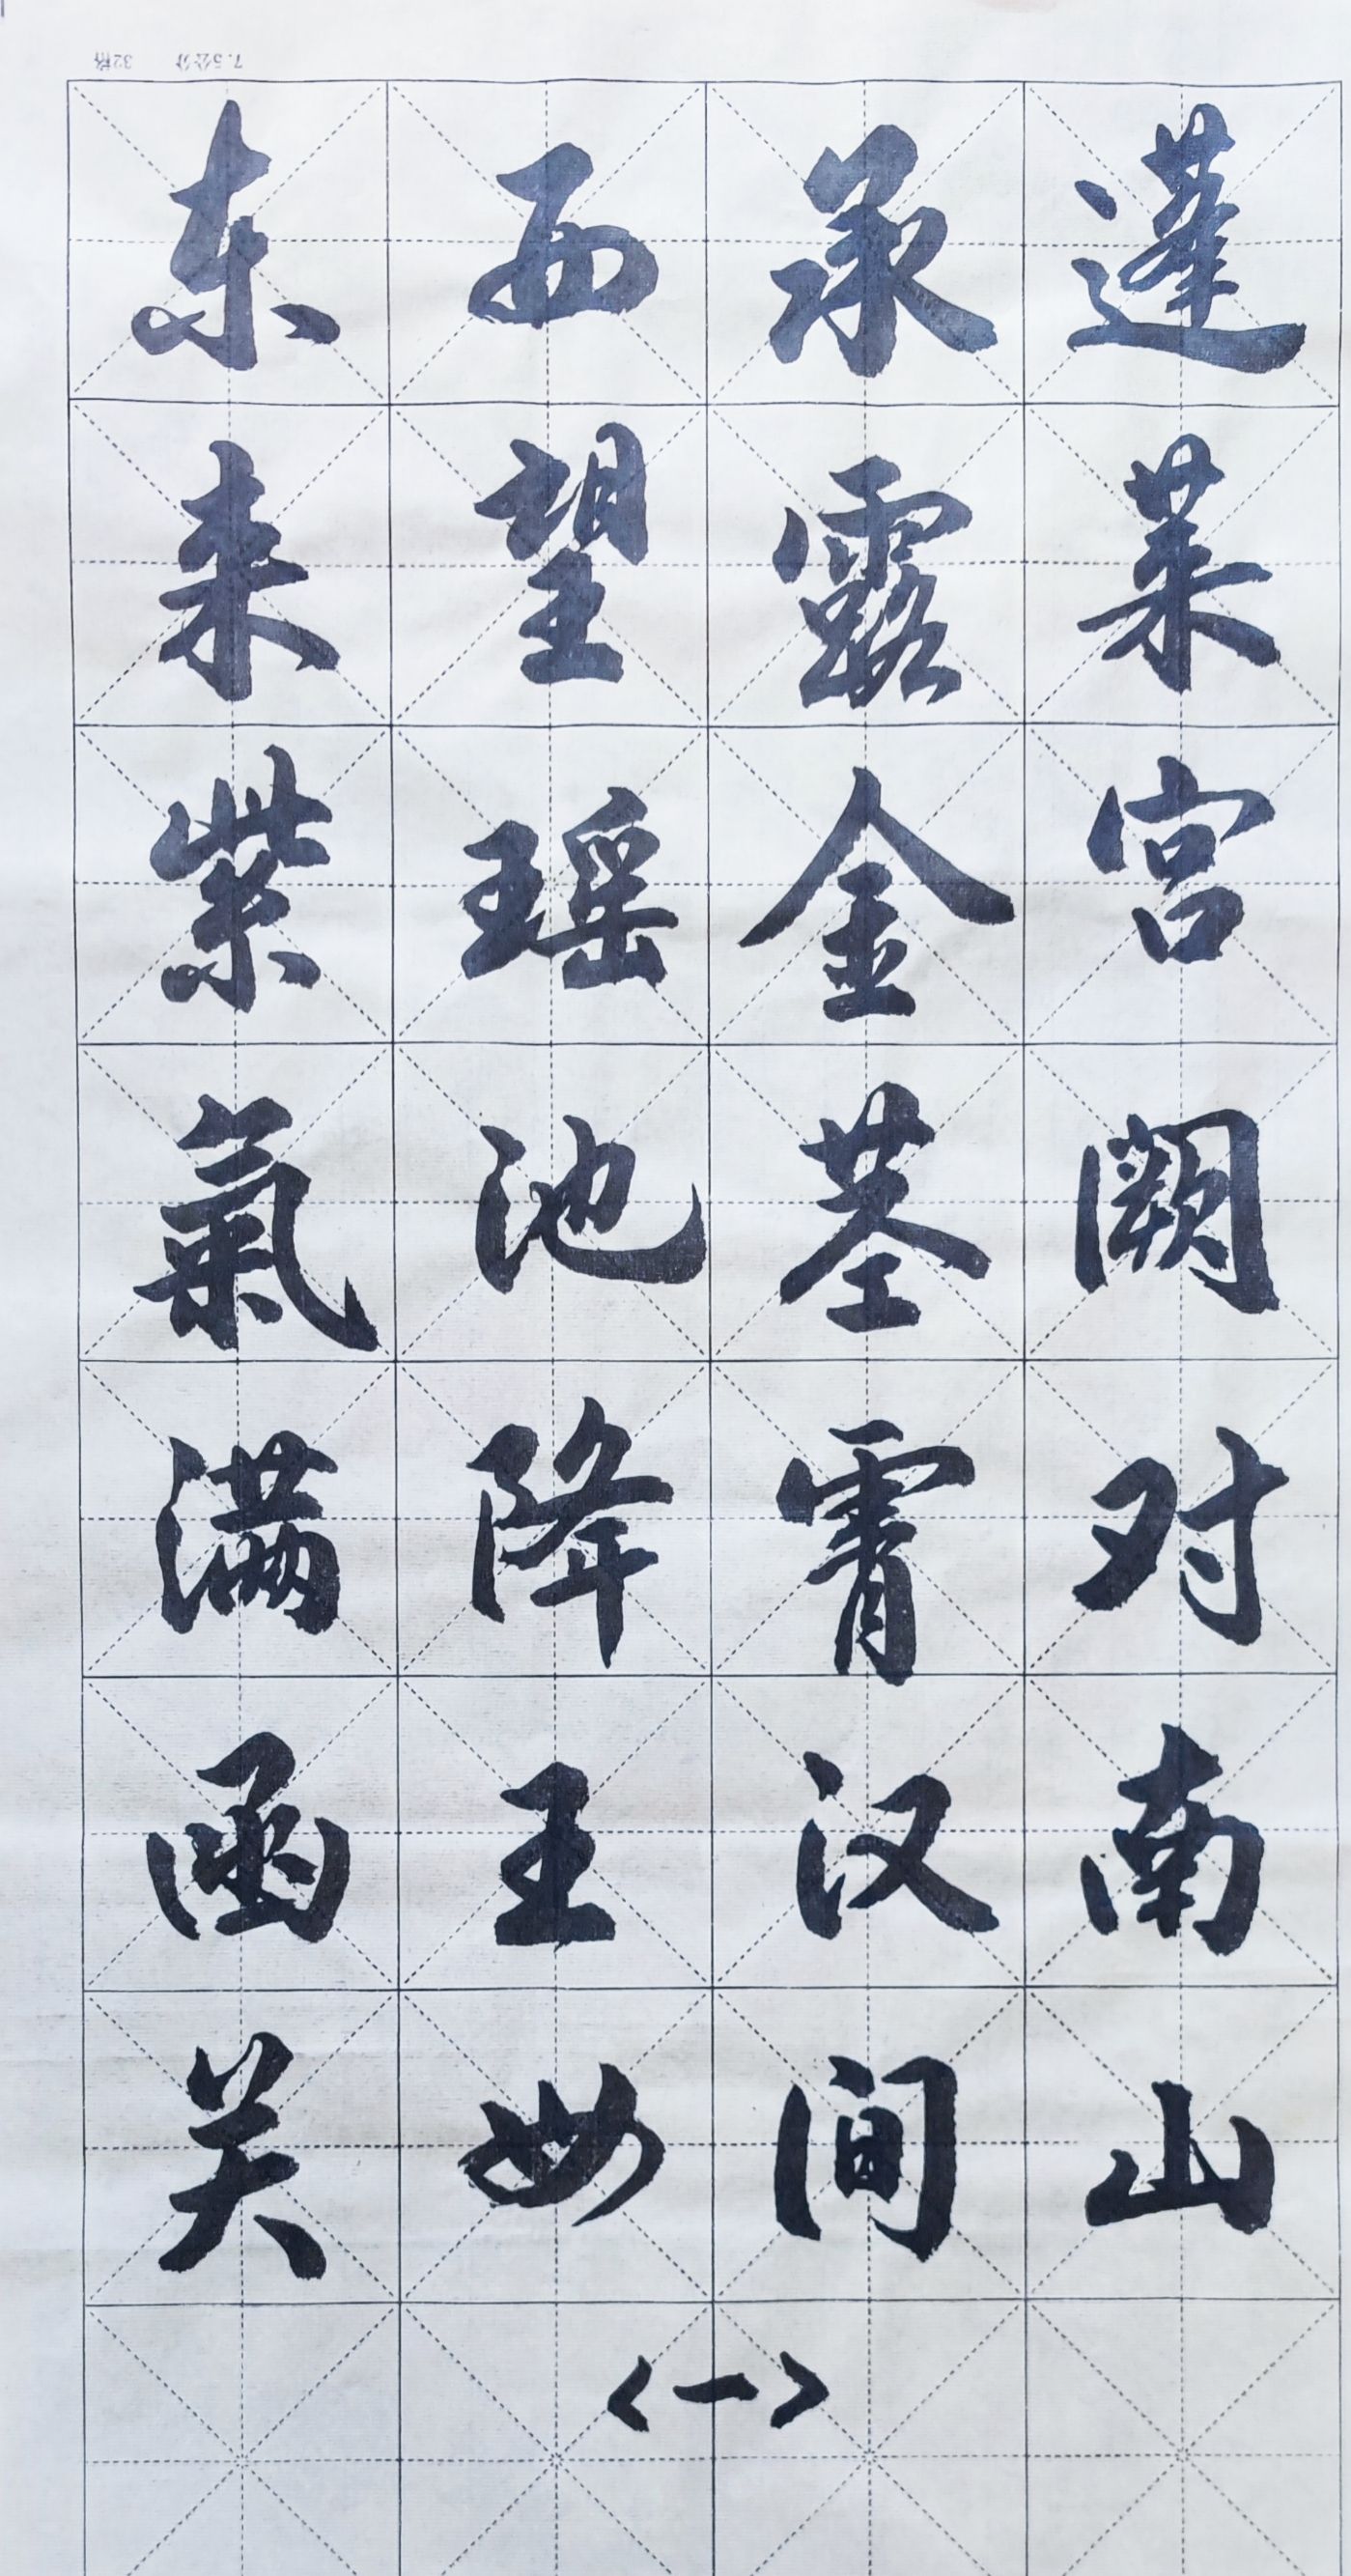 蓬莱宫阙对南山
承露金茎霄汉间
西望瑶池降王母
东来紫氣满函关
〈一〉
7.5公分 32格